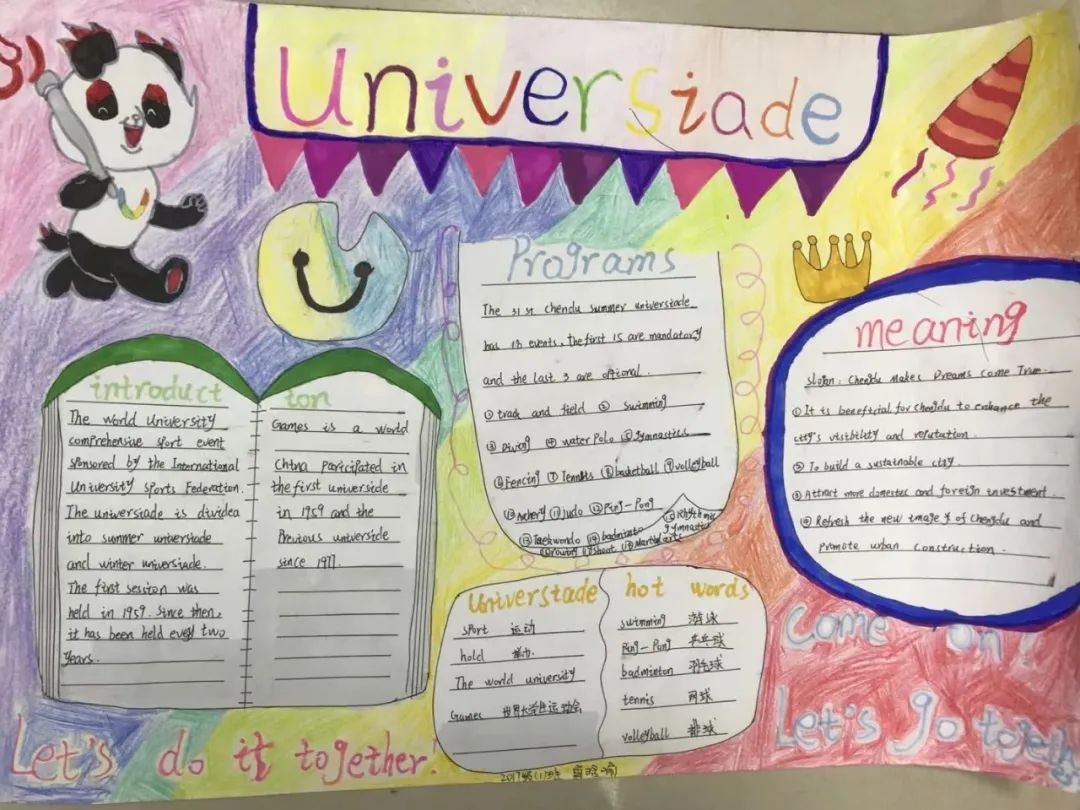 Universiade
introduct
ion
The world University
comprehensive sport event
sponsored by the International
University Sports Federation.
The universiade is divided
into summer universiade
and winter universiade.
The first session was
held in 1959. Since then,
it has been held every two
years.
Games is a world
China Paricipated in
the first universide
in 1959 and the
Previous universide
since 1977.
Programs
The 31 st chendu summer universiade
has 18 events, the first 15 are mandatory
and the last 3 are optional.
① track and field ② swimming
③ Diving ④ water Polo ⑤ gymnastics
⑥ Fencing ⑦ Tennis ⑧ basketball ⑨ volleyball
⑩ Archery ⑪ judo ⑫ Ping-Pong
⑬ Taekwondo ⑭ badminto ⑮ Rhythmic
gymnastics
rowing shoot Martial arts
meaning
Slogan: Chengdu Makes Dreams Come True.
① It is beneficial for chengdu to enhance the
city's visibility and reputation.
② To build a sustainable city.
③ Attract more domestic and foreign investment.
④ Refresh the new image of chengdu and
Promote urban construction.
Universiade hot words
sport 运动
hold 举办
The world university
Games 世界大学生运动会
swimming 游泳
Ping-Pong 乒乓球
badminton 羽毛球
tennis 网球
volleyball 排球
Come on!
Let's go together
Let's do it together!
2017级(1)班